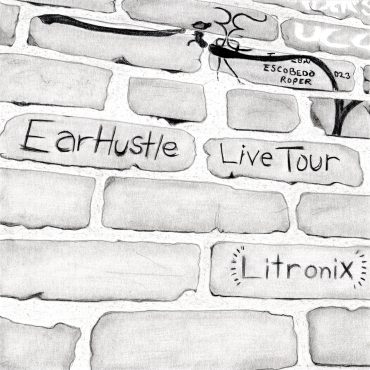 UCC
ESCOBEDO
ROPER
023
EarHustle
Live Tour
Litronix